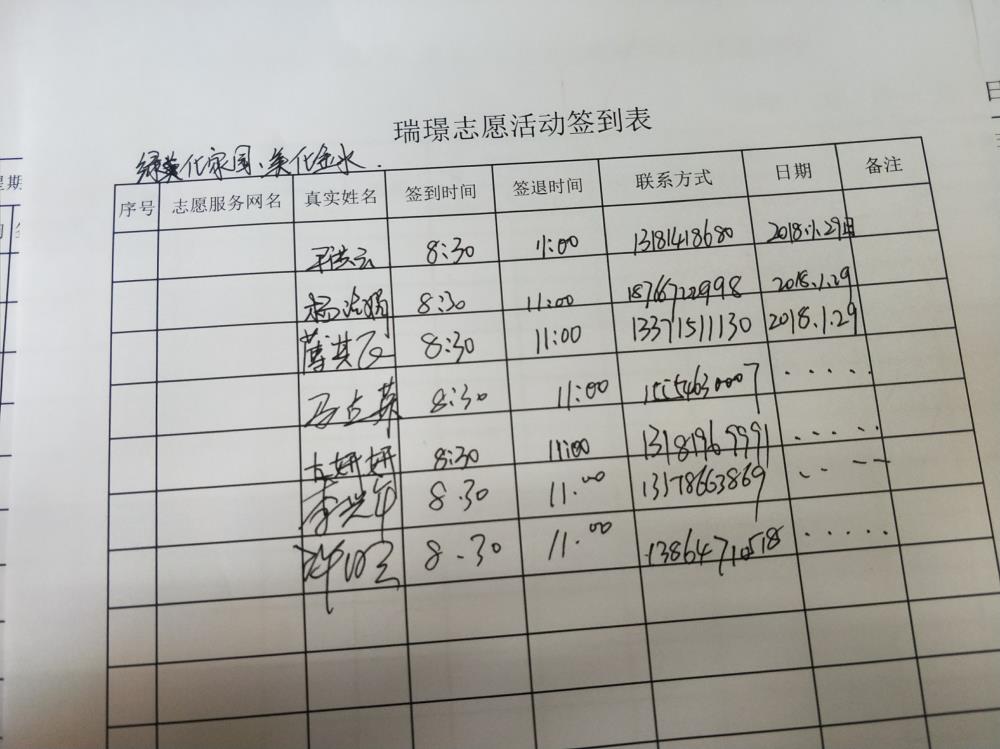 瑞璟志愿活动签到表
绿化家园、美化
序号 志愿服务网名 真实姓名 签到时间 签退时间 联系方式 日期 备注
8:30 11:00 13181418680 2018.1.29日
8:30 11:00 18766722998 2018.1.29
8:30 11:00 13371511130 2018.1.29
马占英 8:30 11:00 15554630007 ·····
妍妍 8:30 11:00 13181969991 ·····
8:30 11:00 13178663869
8:30 11:00 13864710518 ·····
星期
日